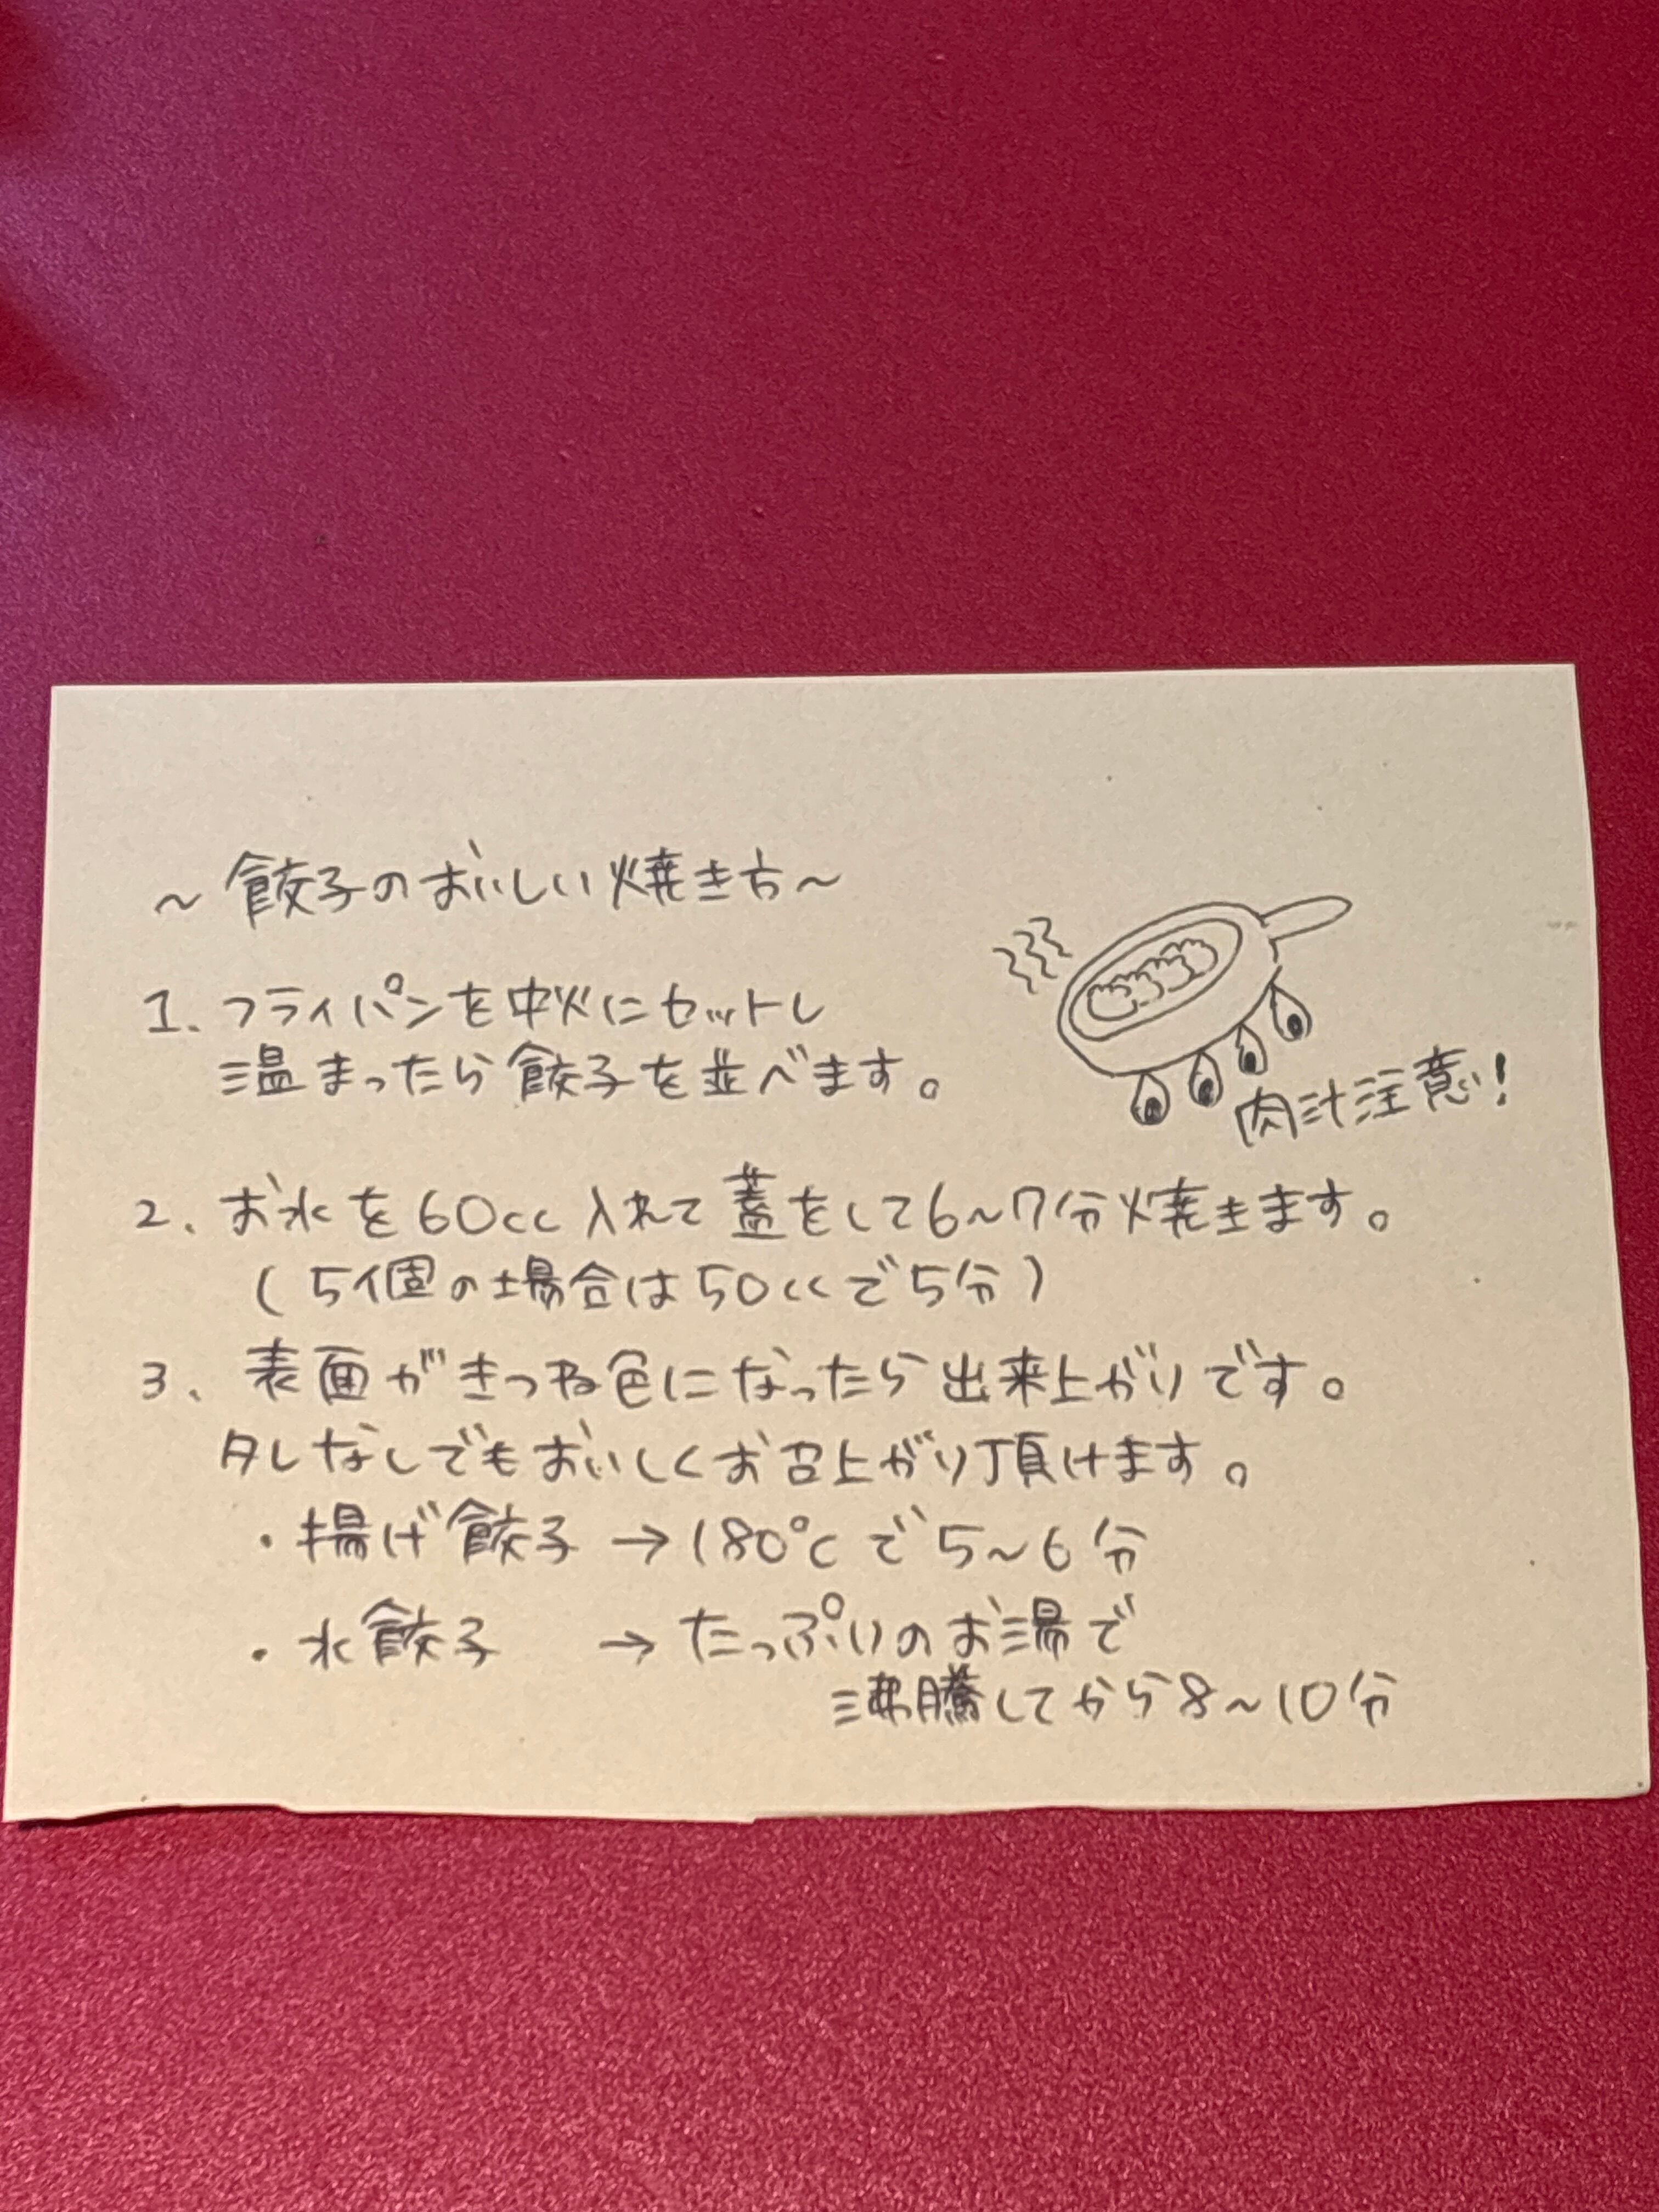 ～餃子のおいしい焼き方～
1. フライパンを中火にセットし
温まったら餃子を並べます。
肉汁注意!
2. お水を60cc入れて蓋をして6～7分焼きます。
(5個の場合は50ccで5分)
3. 表面がきつね色になったら出来上がりです。
タレなしでもおいしくお召上がり頂けます。
・揚げ餃子 → 180℃で5～6分
・水餃子 → たっぷりのお湯で
沸騰してから8～10分